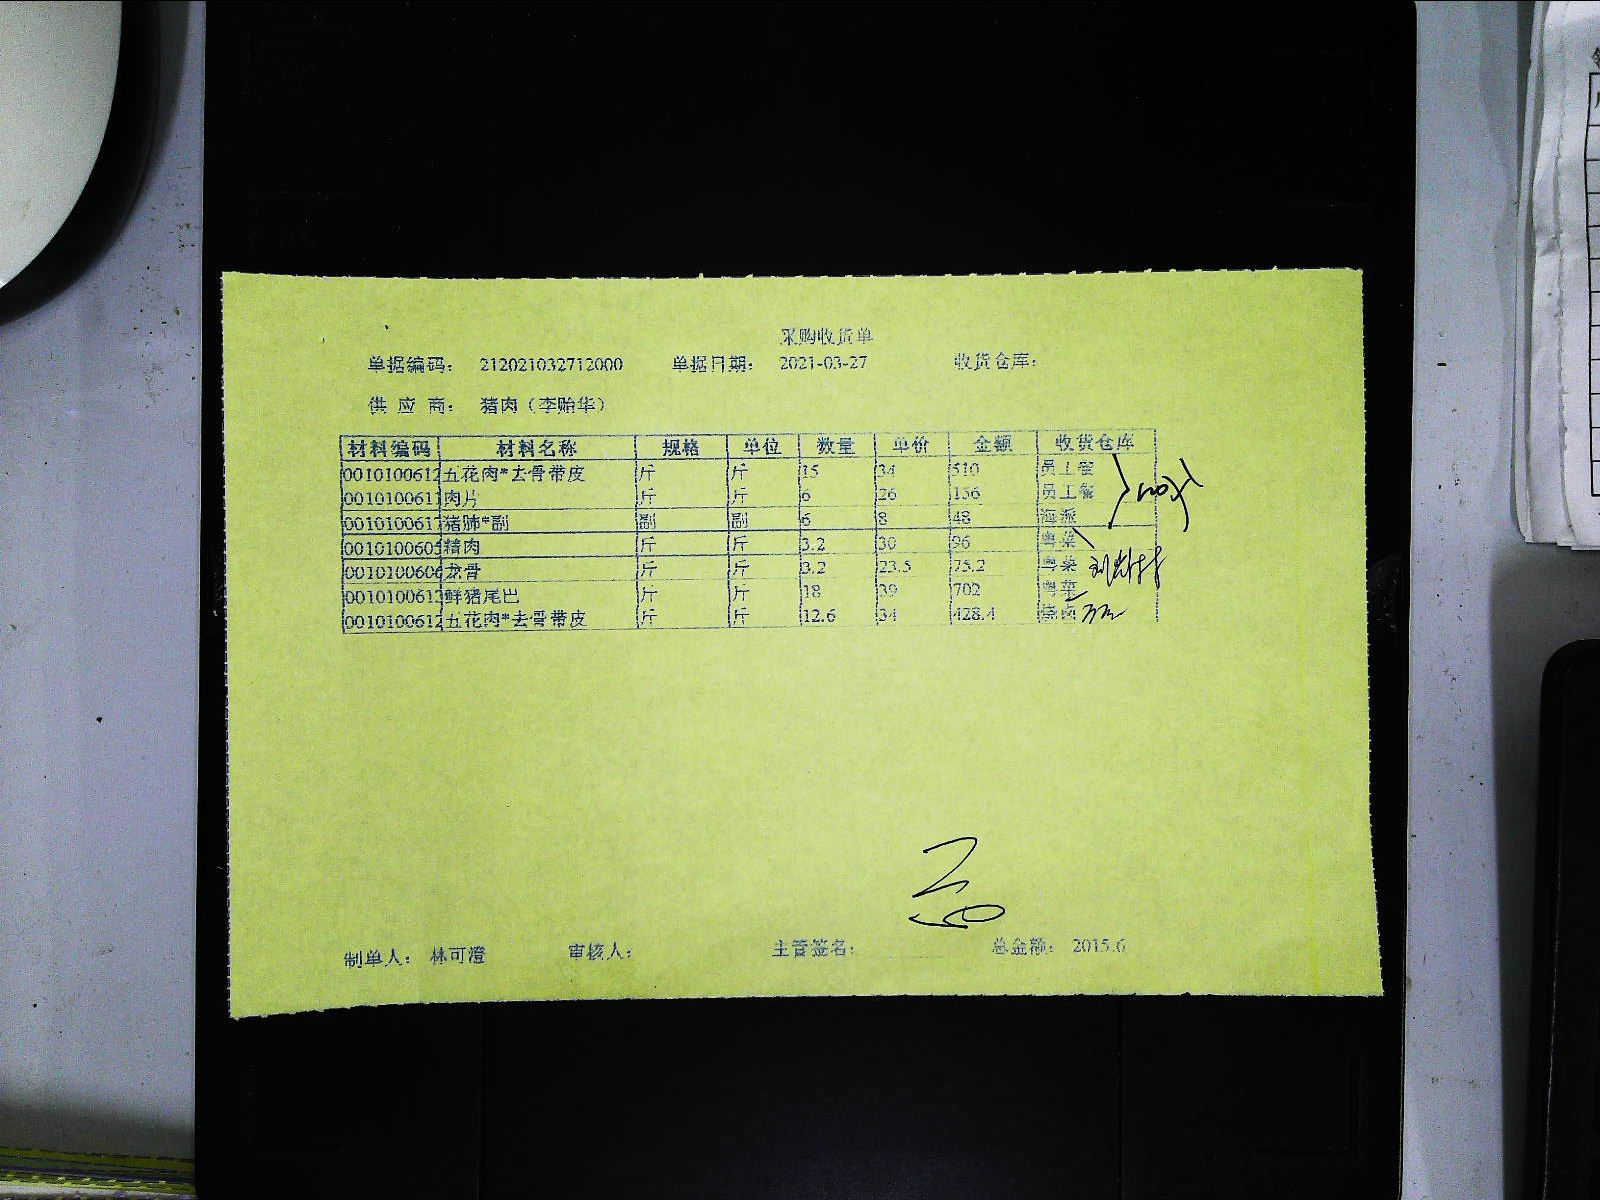 采购收货单
单据编码: 212021032712000 单据日期: 2021-03-27 收货仓库:
供 应 商: 猪肉（李贻华）
材料编码 材料名称 规格 单位 数量 单价 金额 收货仓库
0010100612 五花肉*去骨带皮 斤 斤 15 34 510 员工餐
0010100611 肉片 斤 斤 6 26 156 员工餐
0010100617 猪肺*副 副 副 6 8 48 海派
0010100605 精肉 斤 斤 3.2 30 96 粤菜
0010100606 龙骨 斤 斤 3.2 23.5 75.2 粤菜
0010100613 鲜猪尾巴 斤 斤 18 39 702 粤菜
0010100612 五花肉*去骨带皮 斤 斤 12.6 34 428.4 烧卤
制单人: 林可澄 审核人: 主管签名: 总金额: 2015.6